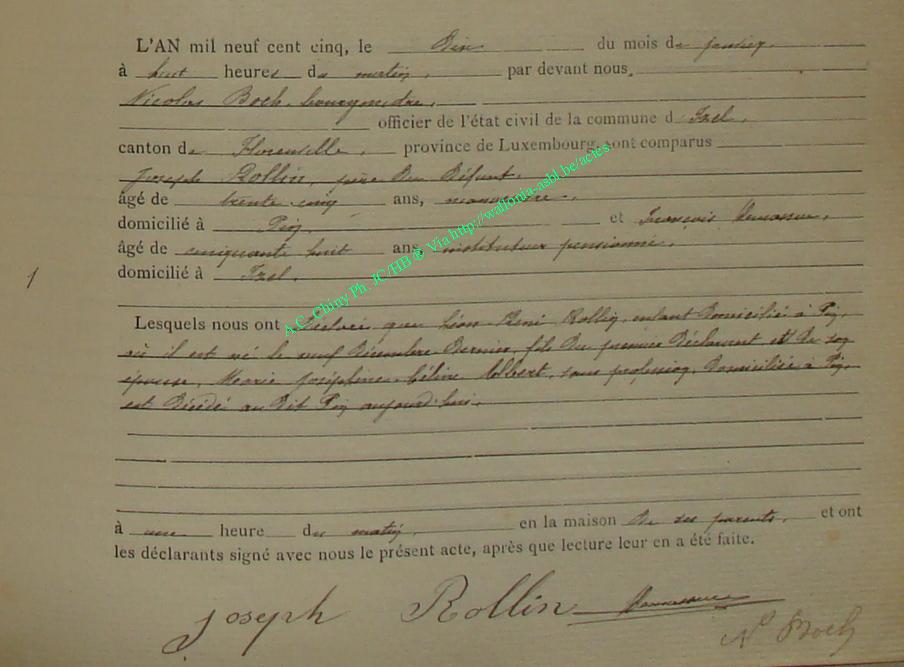 L'AN mil neuf cent cinq, le Dix du mois de janvier.
à huit heures du matin, par devant nous,
Nicolas Boch, bourgmestre,
officier de l'état civil de la commune d'Izel,
canton de Florenville, province de Luxembourg, sont comparus
Joseph Rollin, père du défunt,
âgé de trente cinq ans,
domicilié à Pin, et François
âgé de cinquante huit ans, instituteur pensionné,
domicilié à Izel.
1
Lesquels nous ont déclaré que Léon René Rollin, enfant domicilié à Pin,
où il est né le neuf décembre dernier, fils du premier déclarant et de son
épouse, Marie Joséphine Céline Albert, sans profession, domiciliée à Pin,
est décédé au dit Pin aujourd'hui,
à une heure du matin, en la maison de ses parents, et ont
les déclarants signé avec nous le présent acte, après que lecture leur en a été faite.
Joseph Rollin
N Boch
A.C. Chiny Ph. JC/HB © Via http://wallonia-asbl.be/actes